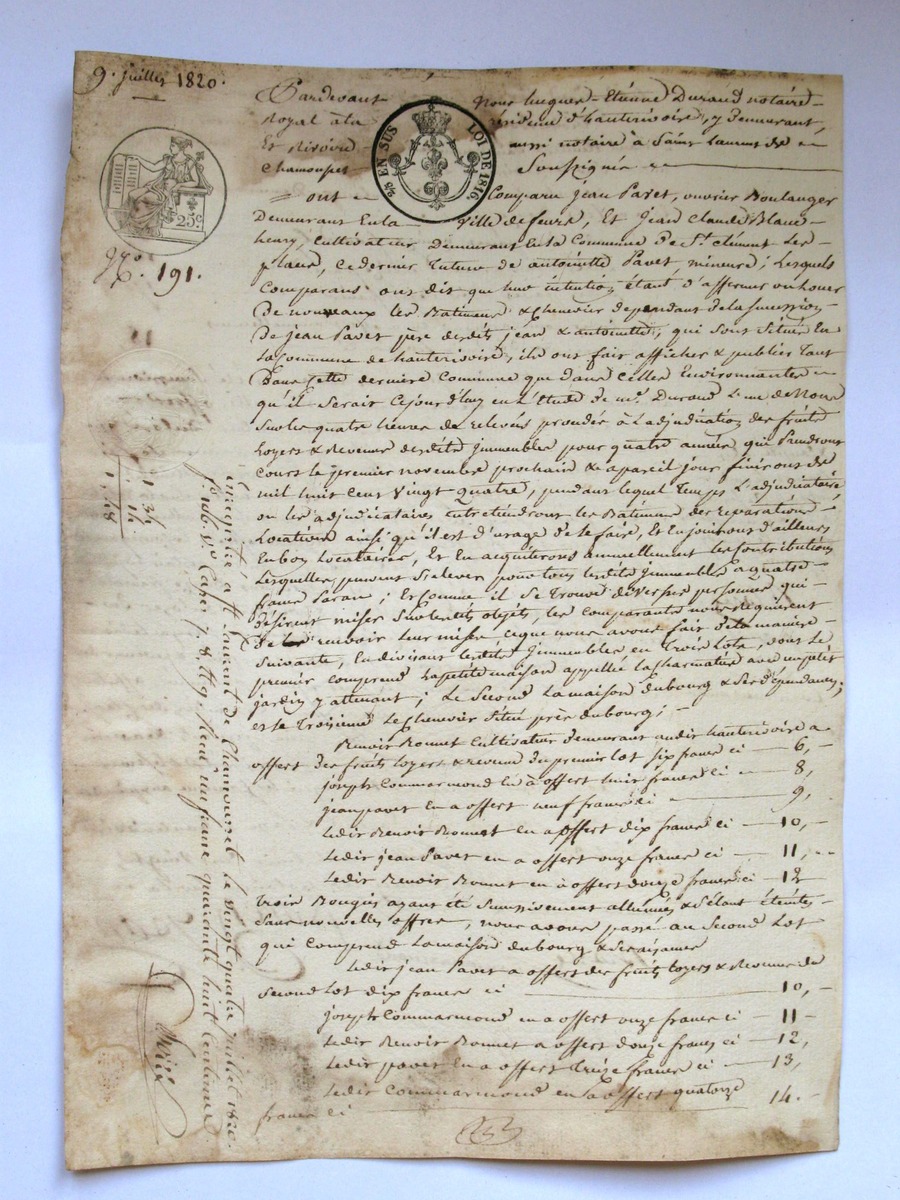 9. juillet 1820.
Pardevant Nous Jucques-Etienne Durand notaire
royal à la résidence d'hauterivoire, y demeurant,
Et Rivoire aussi notaire à Saint Laurent de
Chamousset Soussignés
2/5 EN SUS LOI DE 1816
25c
No. 191.
ont Comparu jean Pavet, ouvrier Boulanger
Demeurant En la Ville de feurs, Et jean Claude Blanc
henry, Cultivateur Demeurant En la Commune de St. Clément les
places, Ce dernier tuteur de antoinette Pavet, mineure; Lesquels
Comparans ont dit que leur intention étant d'affermer ou louer
De nouveaux les Batimens & Chenevier dependant de la Succession
De jean Pavet père desdits jean & antoinette, qui sont Situés En
la Commune de hauterivoire, ils ont fait afficher & publier tant
Dans Cette dernière Commune que dans Celles Environnantes
qu'il Serait Cejourd'huy en l'Etude de me. Durand L'un de Nous
Sur les quatre heures de relevée procédé à L'adjudication des fruits
Loyers & Revenus desdits Immeubles pour quatre années qui Prendront
Cours le premier novembre prochain & a pareil jour finiront de
mil huit Cent Vingt Quatre, pendant lequel Temps L'adjudicataire
ou les adjudicataires entretiendront les Bâtimens des Reparations
Locatives ainsi qu'il est d'usage de le faire, Et En jouiront d'ailleurs
En bons Locataires, Et En acquitteront annuellement les Contributions
Lesquelles peuvent S'elever pour tous lesdits Immeubles a quatre
francs par an; Et Comme il Se Trouve diverses personnes qui
désirent miser Sur lesdits objets, les Comparants nous Requierent
De recevoir leur mises, Ce que nous avons fait de la manière
Suivante, En divisant lesdits Immeubles en Trois Lots, dont Le
premier Comprend la petite maison appellée la Charnatur avec un petit
jardin y attenant; Le Second La maison du bourg & Ses dépendances;
et le Troisieme Le Chenevier Situé près du bourg;
Benoit Bonnet Cultivateur demeurant audit hauterivoire a
offert des fruits Loyers & revenus du premier lot Six francs ci — 6,
joseph Commarmond En à offert huit francs ci — 8,
jean pavet En a offert neuf francs ci — 9,
Ledit Benoit Bonnet en a offert dix francs ci — 10,
Ledit jean Pavet en a offert onze francs ci — 11,
Ledit Benoit Bonnet en à offert douze francs ci — 12
Trois Bougies ayant été Successivement allumées & S'étant éteintes
Sans nouvelles offres, nous avons passé au Second Lot
qui Comprend La maison du bourg & Ses aisances
Ledit jean Pavet a offert des fruits Loyers & Revenus du
Second lot dix francs ci — 10,
joseph Commarmond en a offert onze francs ci — 11
Ledit Benoit Bonnet a offert douze francs ci — 12,
Ledit pavet En a offert Treize francs ci — 13,
Ledit Commarmond en a offert quatorze
francs ci — 14.
1 34
14
1, 48
Enregistré à St Laurent de Chamousset le vingt quatre juillet 1820.
fo. 106. Vo. Case 7. 8. & 9. Reçu un franc quarante huit Centimes